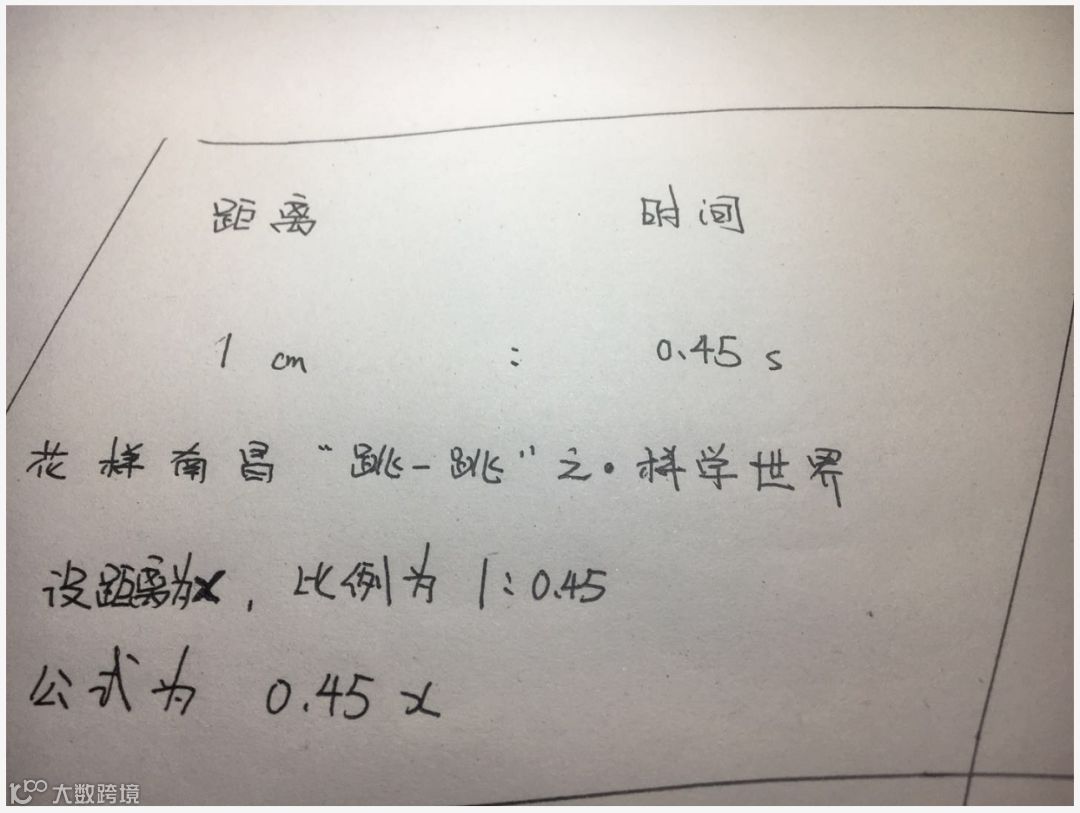 距离 时间
1 cm : 0.45 s
花样南昌“跳一跳”之·科学世界
设距离为x, 比例为 1:0.45
公式为 0.45 x
大数跨境